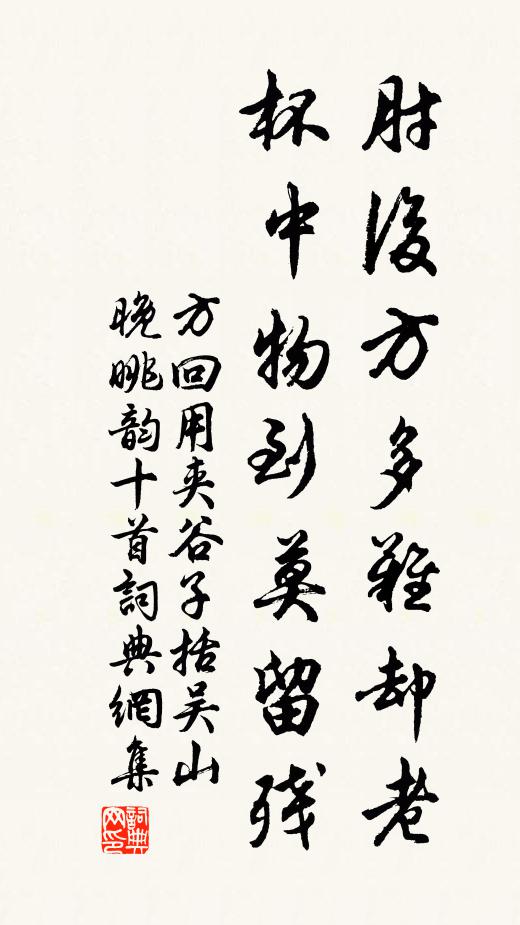 肘後方多難却老
杯中物到莫留殘
方回用夾谷子括吴山
晚眺韵十首詞典網集
詞典網印